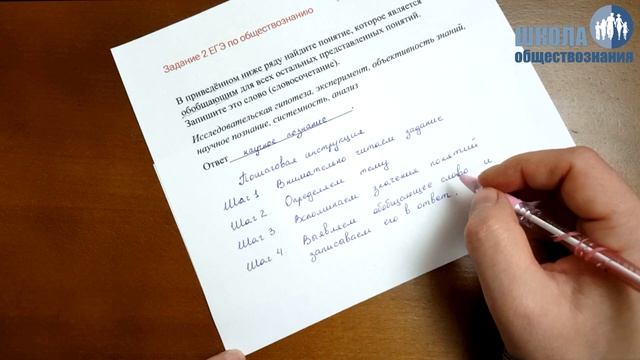 ШКОЛА
обществознания
Задание 2 ЕГЭ по обществознанию
В приведённом ниже ряду найдите понятие, которое является
обобщающим для всех остальных представленных понятий.
Запишите это слово (словосочетание).
Исследовательская гипотеза, эксперимент, объективность знаний,
научное познание, системность, анализ
Ответ научное познание.
Пошаговая инструкция
Шаг 1 Внимательно читаем задание
Шаг 2 Определяем тему
Шаг 3 Вспоминаем значения понятий
Шаг 4 Выявляем обобщающее слово и
записываем его в ответ.